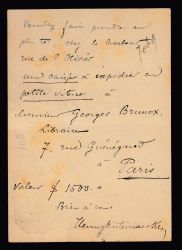 Veuillez faire prendre au
plus tôt, chez le docteur
rue de l'
une caisse à expédier en
petite vitesse à
Monsieur Georges Brunox,
Libraire
7, rue Guénégaud
à
Paris.
Valeur $ 1500.
Bien à vous